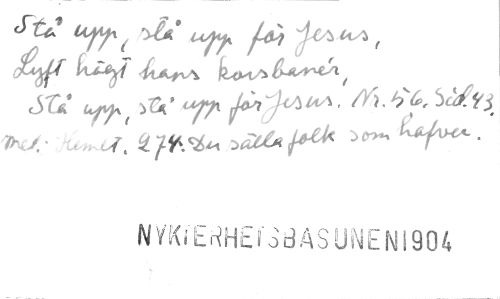 Stå upp, stå upp för Jesus,
Lyft högt hans korsbanér,
Stå upp, stå upp för Jesus. Nr. 56. Sid. 43.
mel. Hemet. 274. Du sälla folk som hafver.
NYKTERHETSBASUNEN1904